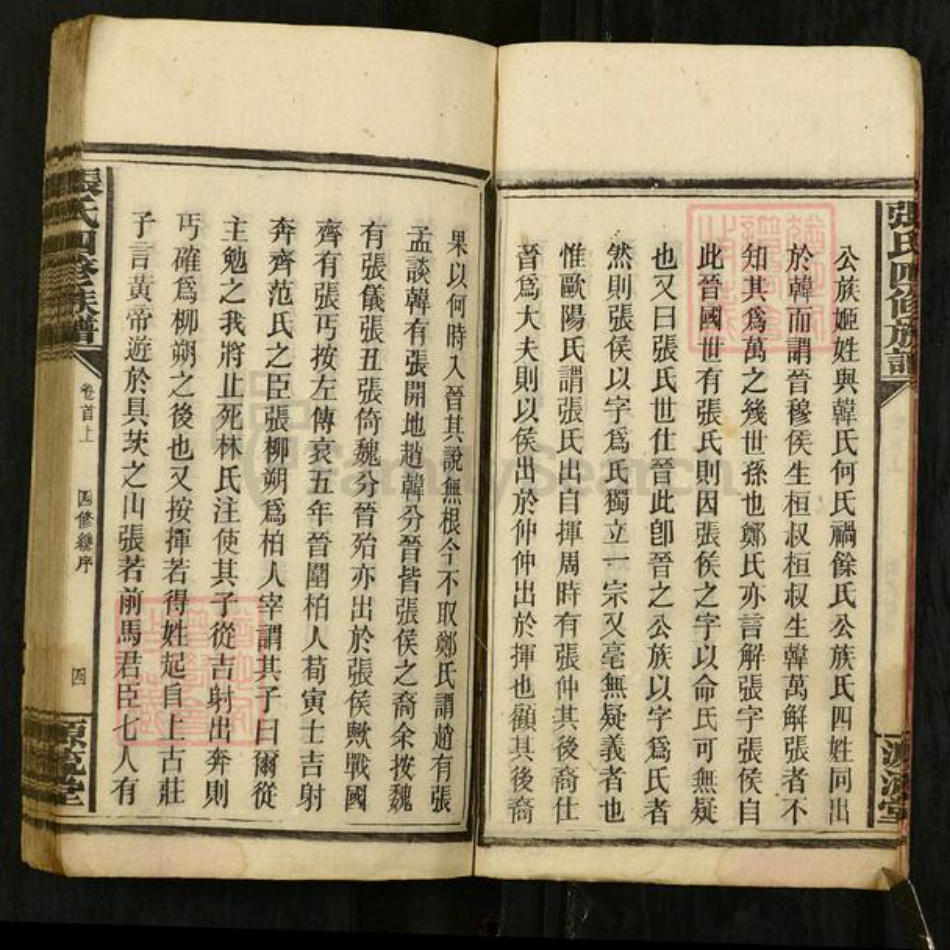 張氏四修族譜
公族姬姓與韓氏何氏禍餘氏公族氏四姓同出
於韓而謂晉穆侯生桓叔桓叔生韓萬解張者不
知其爲萬之幾世孫也鄭氏亦言解張字張侯自
此晉國世有張氏則因張侯之字以命氏可無疑
也又曰張氏世仕晉此卽晉之公族以字爲氏者
然則張侯以字爲氏獨立一宗又毫無疑義者也
惟歐陽氏謂張氏出自揮周時有張仲其後裔仕
晉爲大夫則以侯出於仲仲出於揮也顧其後裔
果以何時入晉其說無根今不取鄭氏謂趙有張
孟談韓有張開地趙韓分晉皆張侯之裔余按魏
有張儀張丑張倚魏分晉殆亦出於張侯歟戰國
齊有張丐按左傳哀五年晉圍柏人荀寅士吉射
奔齊范氏之臣張柳朔爲柏人宰謂其子曰爾從
主勉之我將止死林氏注使其子從吉射出奔則
丐確爲柳朔之後也又按揮若得姓起自上古莊
子言黃帝遊於具茨之山張若前馬君臣七人有
張氏四修族譜
卷首上
四修總序
四
FamilySearch